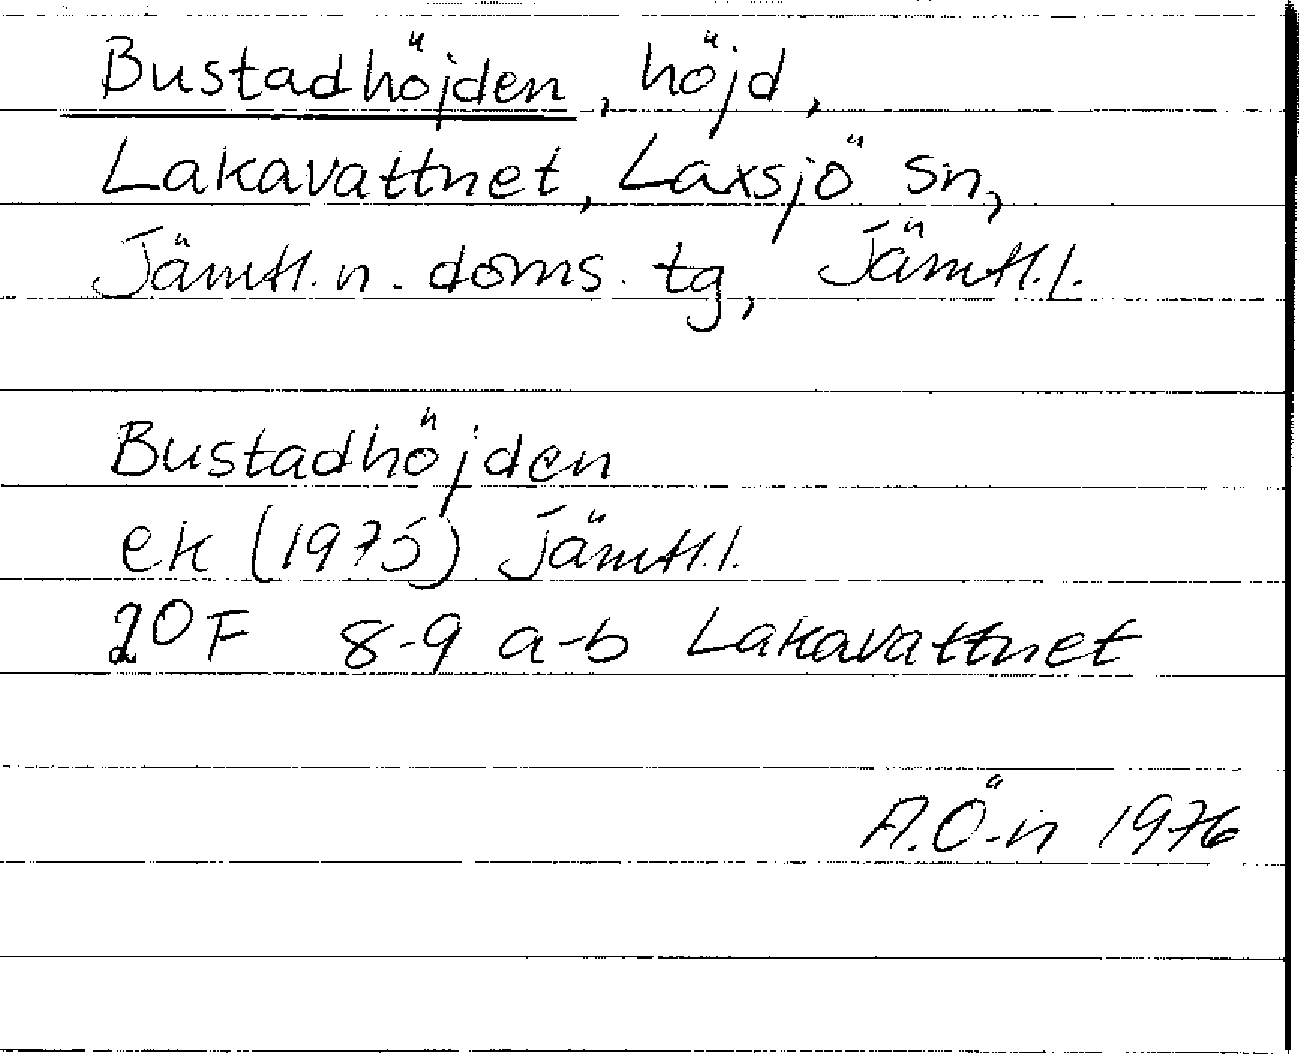 Bustadhöjden, höjd,
Lakavattnet, Laxsjö sn,
Jämtl. n. doms. tg, Jämtl. l.
Bustadhöjden
ek (1975) Jämtl. l.
20F 8-9 a-b Lakavattnet
A.Ö-n 1976